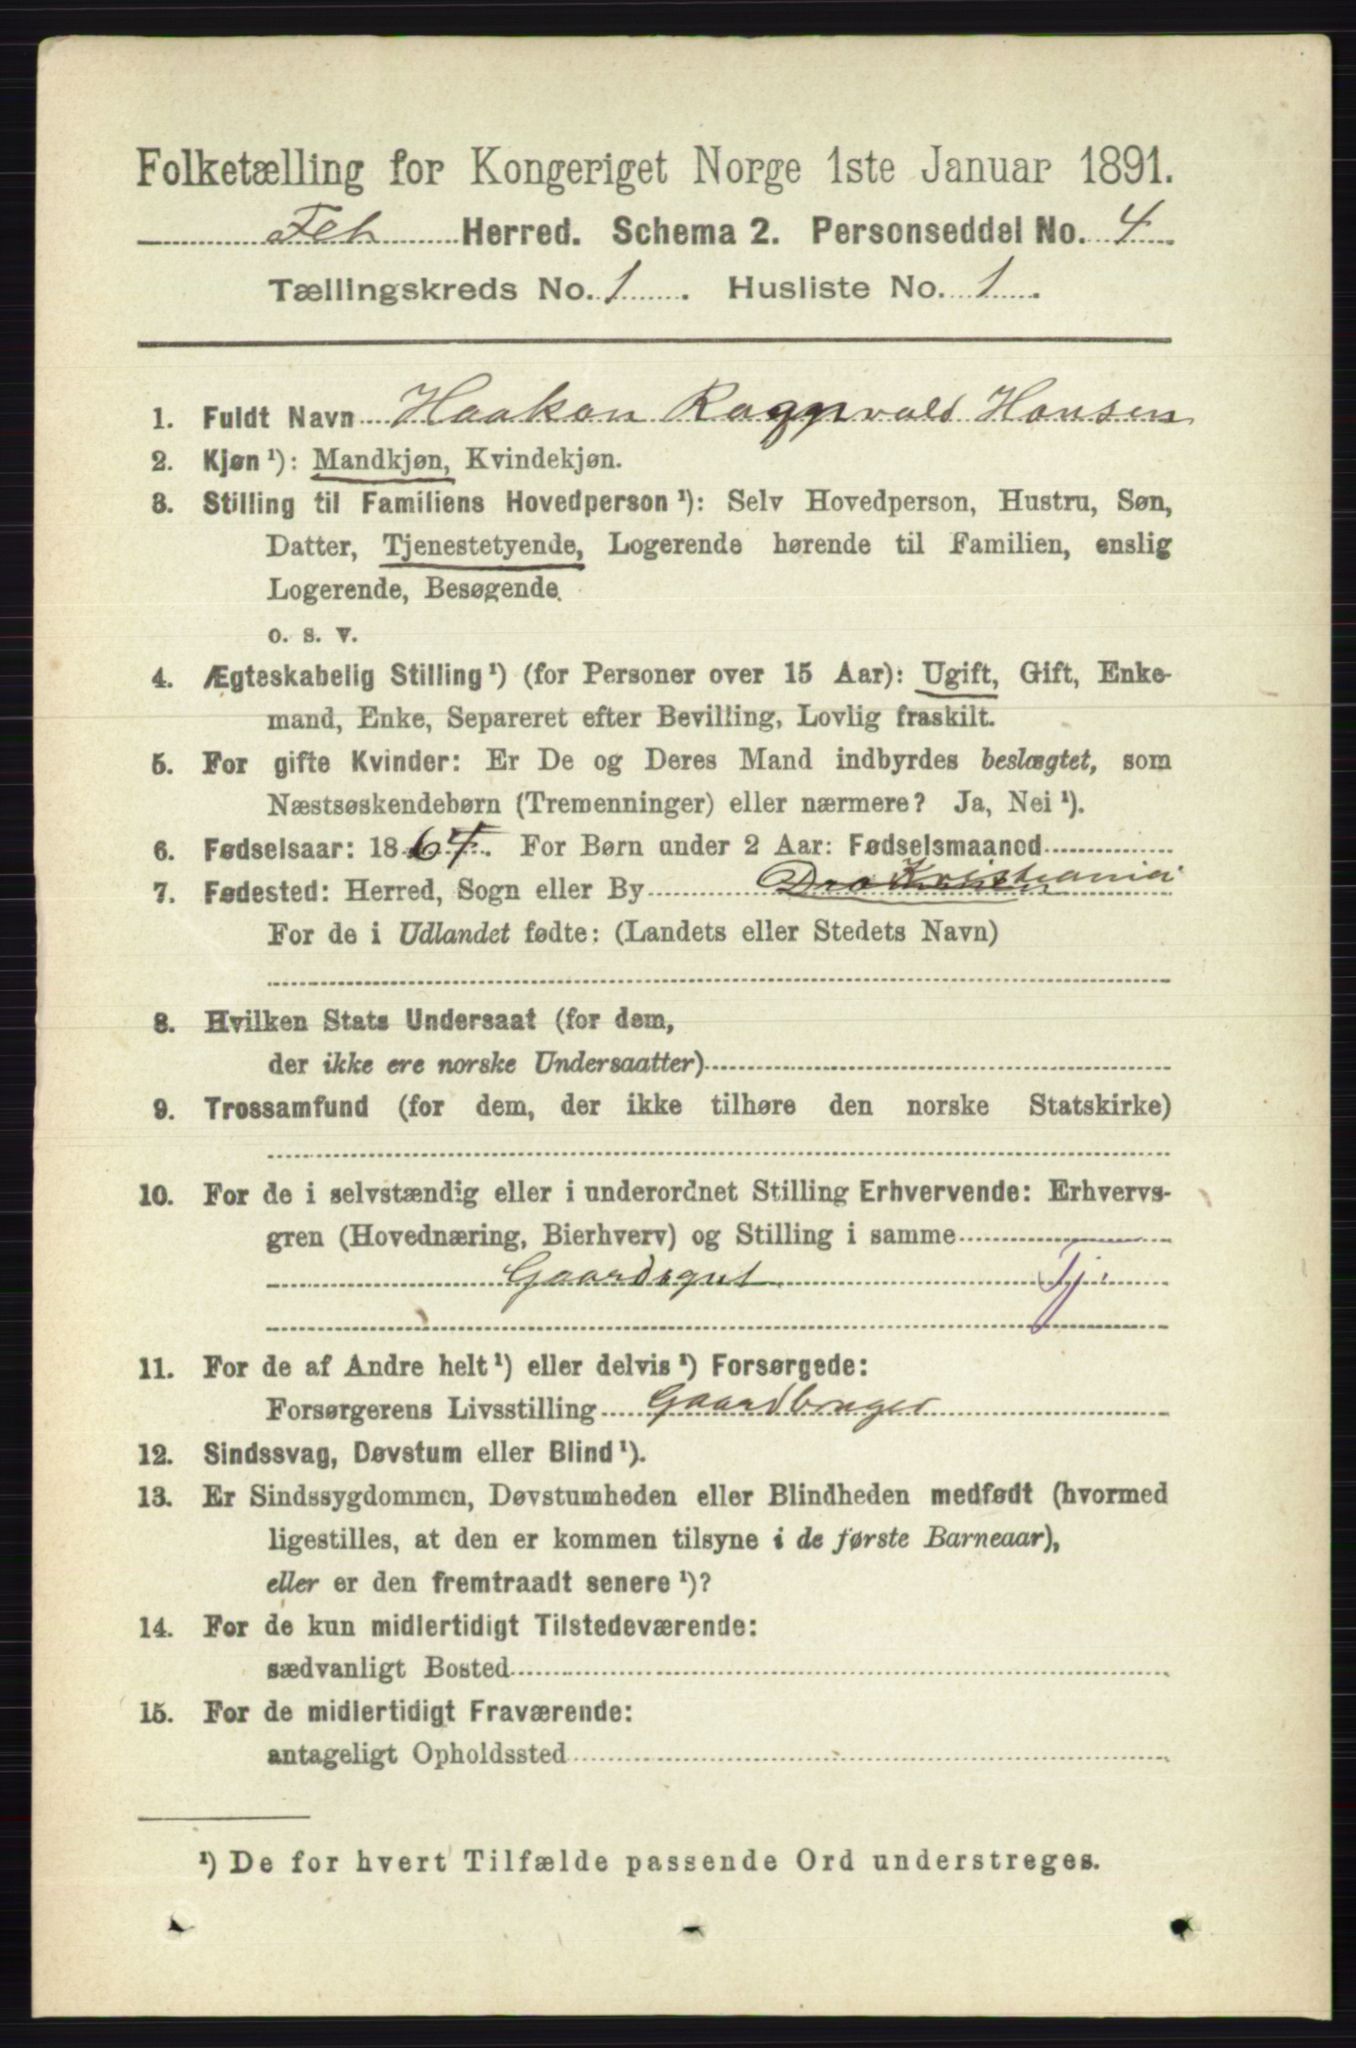 Folketælling for Kongeriget Norge 1ste Januar 1891.
Fet Herred. Schema 2. Personseddel No. 4
Tællingskreds No. 1. Husliste No. 1.
1. Fuldt Navn Haakon Ragnvald Hansen
2. Kjøn¹): Mandkjøn, Kvindekjøn.
3. Stilling til Familiens Hovedperson¹): Selv Hovedperson, Hustru, Søn,
Datter, Tjenestetyende, Logerende hørende til Familien, enslig
Logerende, Besøgende
o. s. v.
4. Ægteskabelig Stilling¹) (for Personer over 15 Aar): Ugift, Gift, Enke-
mand, Enke, Separeret efter Bevilling, Lovlig fraskilt.
5. For gifte Kvinder: Er De og Deres Mand indbyrdes beslægtet, som
Næstsøskendebørn (Tremenninger) eller nærmere? Ja, Nei¹).
6. Fødselsaar: 1864. For Børn under 2 Aar: Fødselsmaaned
7. Fødested: Herred, Sogn eller By Kristiania
For de i Udlandet fødte: (Landets eller Stedets Navn)
8. Hvilken Stats Undersaat (for dem,
der ikke ere norske Undersaatter)
9. Trossamfund (for dem, der ikke tilhøre den norske Statskirke)
10. For de i selvstændig eller i underordnet Stilling Erhvervende: Erhvervs-
gren (Hovednæring, Bierhverv) og Stilling i samme
Gaardsgut Tj.
11. For de af Andre helt¹) eller delvis¹) Forsørgede:
Forsørgerens Livsstilling Gaardbruger
12. Sindssvag, Døvstum eller Blind¹).
13. Er Sindssygdommen, Døvstumheden eller Blindheden medfødt (hvormed
ligestilles, at den er kommen tilsyne i de første Barneaar),
eller er den fremtraadt senere¹)?
14. For de kun midlertidigt Tilstedeværende:
sædvanligt Bosted
15. For de midlertidigt Fraværende:
antageligt Opholdssted
¹) De for hvert Tilfælde passende Ord understreges.